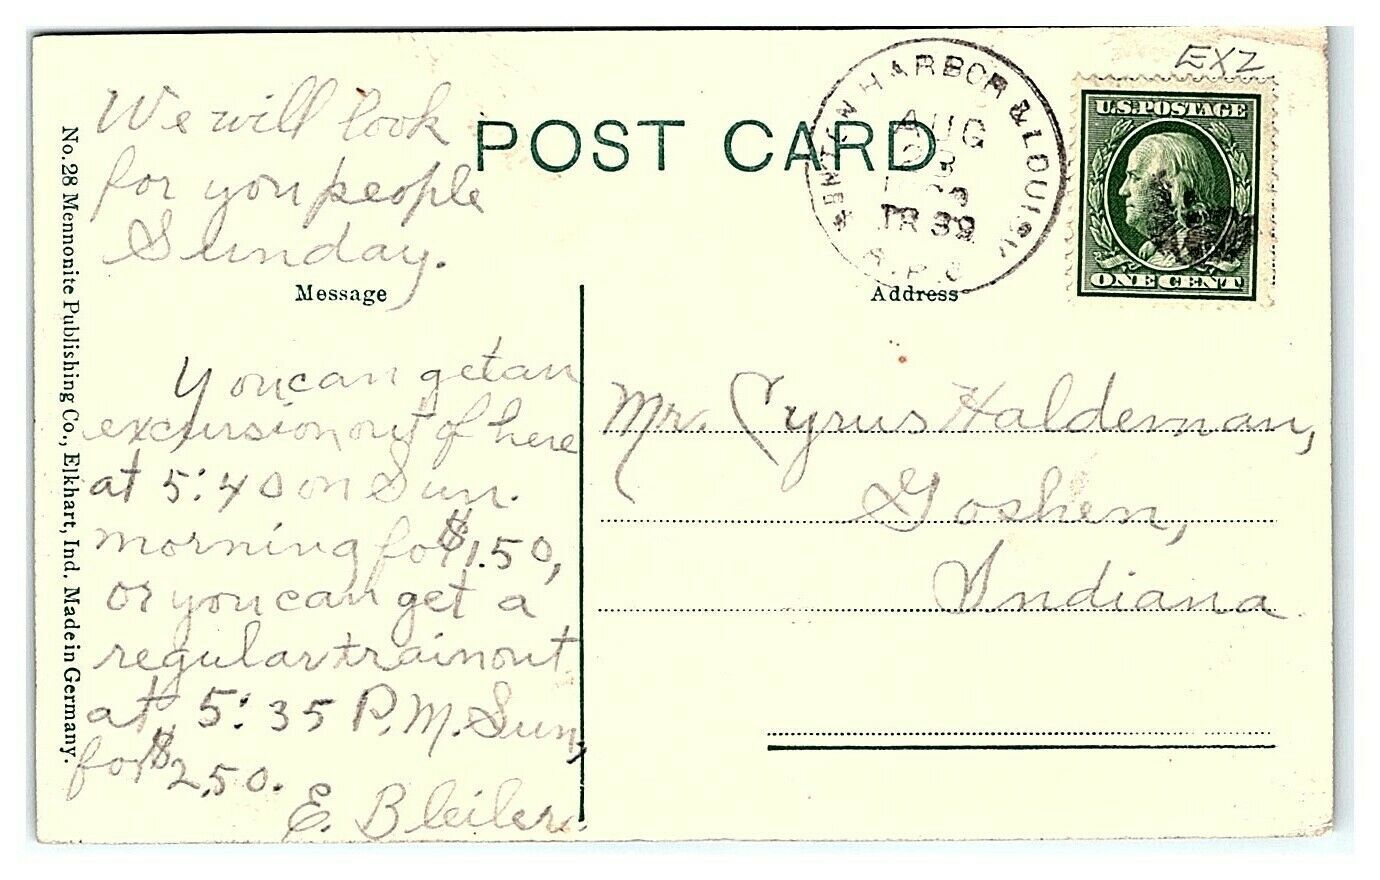 EXZ
We will look
for you people
Sunday.
POST CARD
BENTON HARBOR & LOUISV.
AUG
TR 39
R.P.O.
U.S. POSTAGE
ONE CENT
Message
Address
You can get an
excursion out of here
at 5:40 on Sun.
morning for $1.50,
or you can get a
regular train out
at 5:35 P.M. Sun,
for $2.50.
E. Bleiler.
Mr. Cyrus Haldeman,
Goshen,
Indiana
No. 28 Mennonite Publishing Co., Elkhart, Ind. Made in Germany.